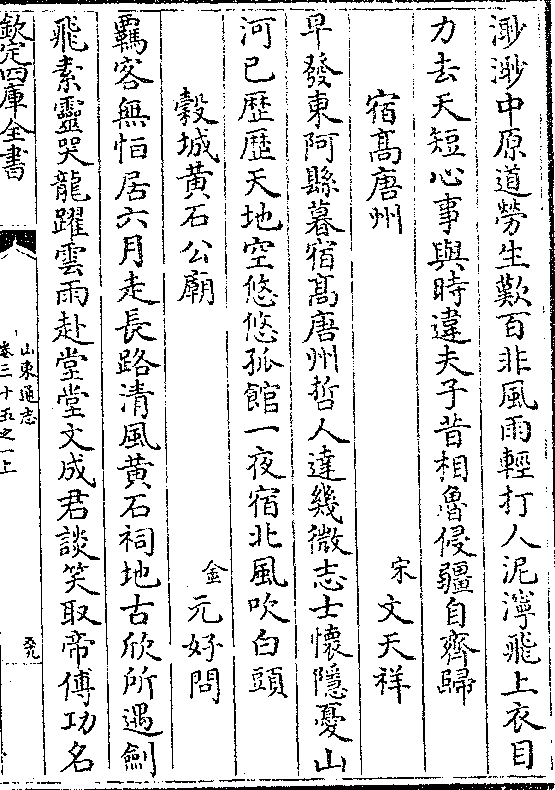 渺渺中原道勞生歎百非風雨輕打人泥濘飛上衣目
力去天短心事與時違夫子昔相魯侵疆自齊歸
宿髙唐州
宋 文天祥
早發東阿縣暮宿髙唐州哲人達幾微志士懷隱憂山
河已歴歴天地空悠悠孤館一夜宿北風吹白頭
榖城黄石公廟
金 元好問
覊客無恒居六月走長路清風黄石祠地古欣所遇劍
飛素靈哭龍躍雲雨赴堂堂文成君談笑取帝傅功名
欽定四庫全書
山東通志
卷三十五之一上